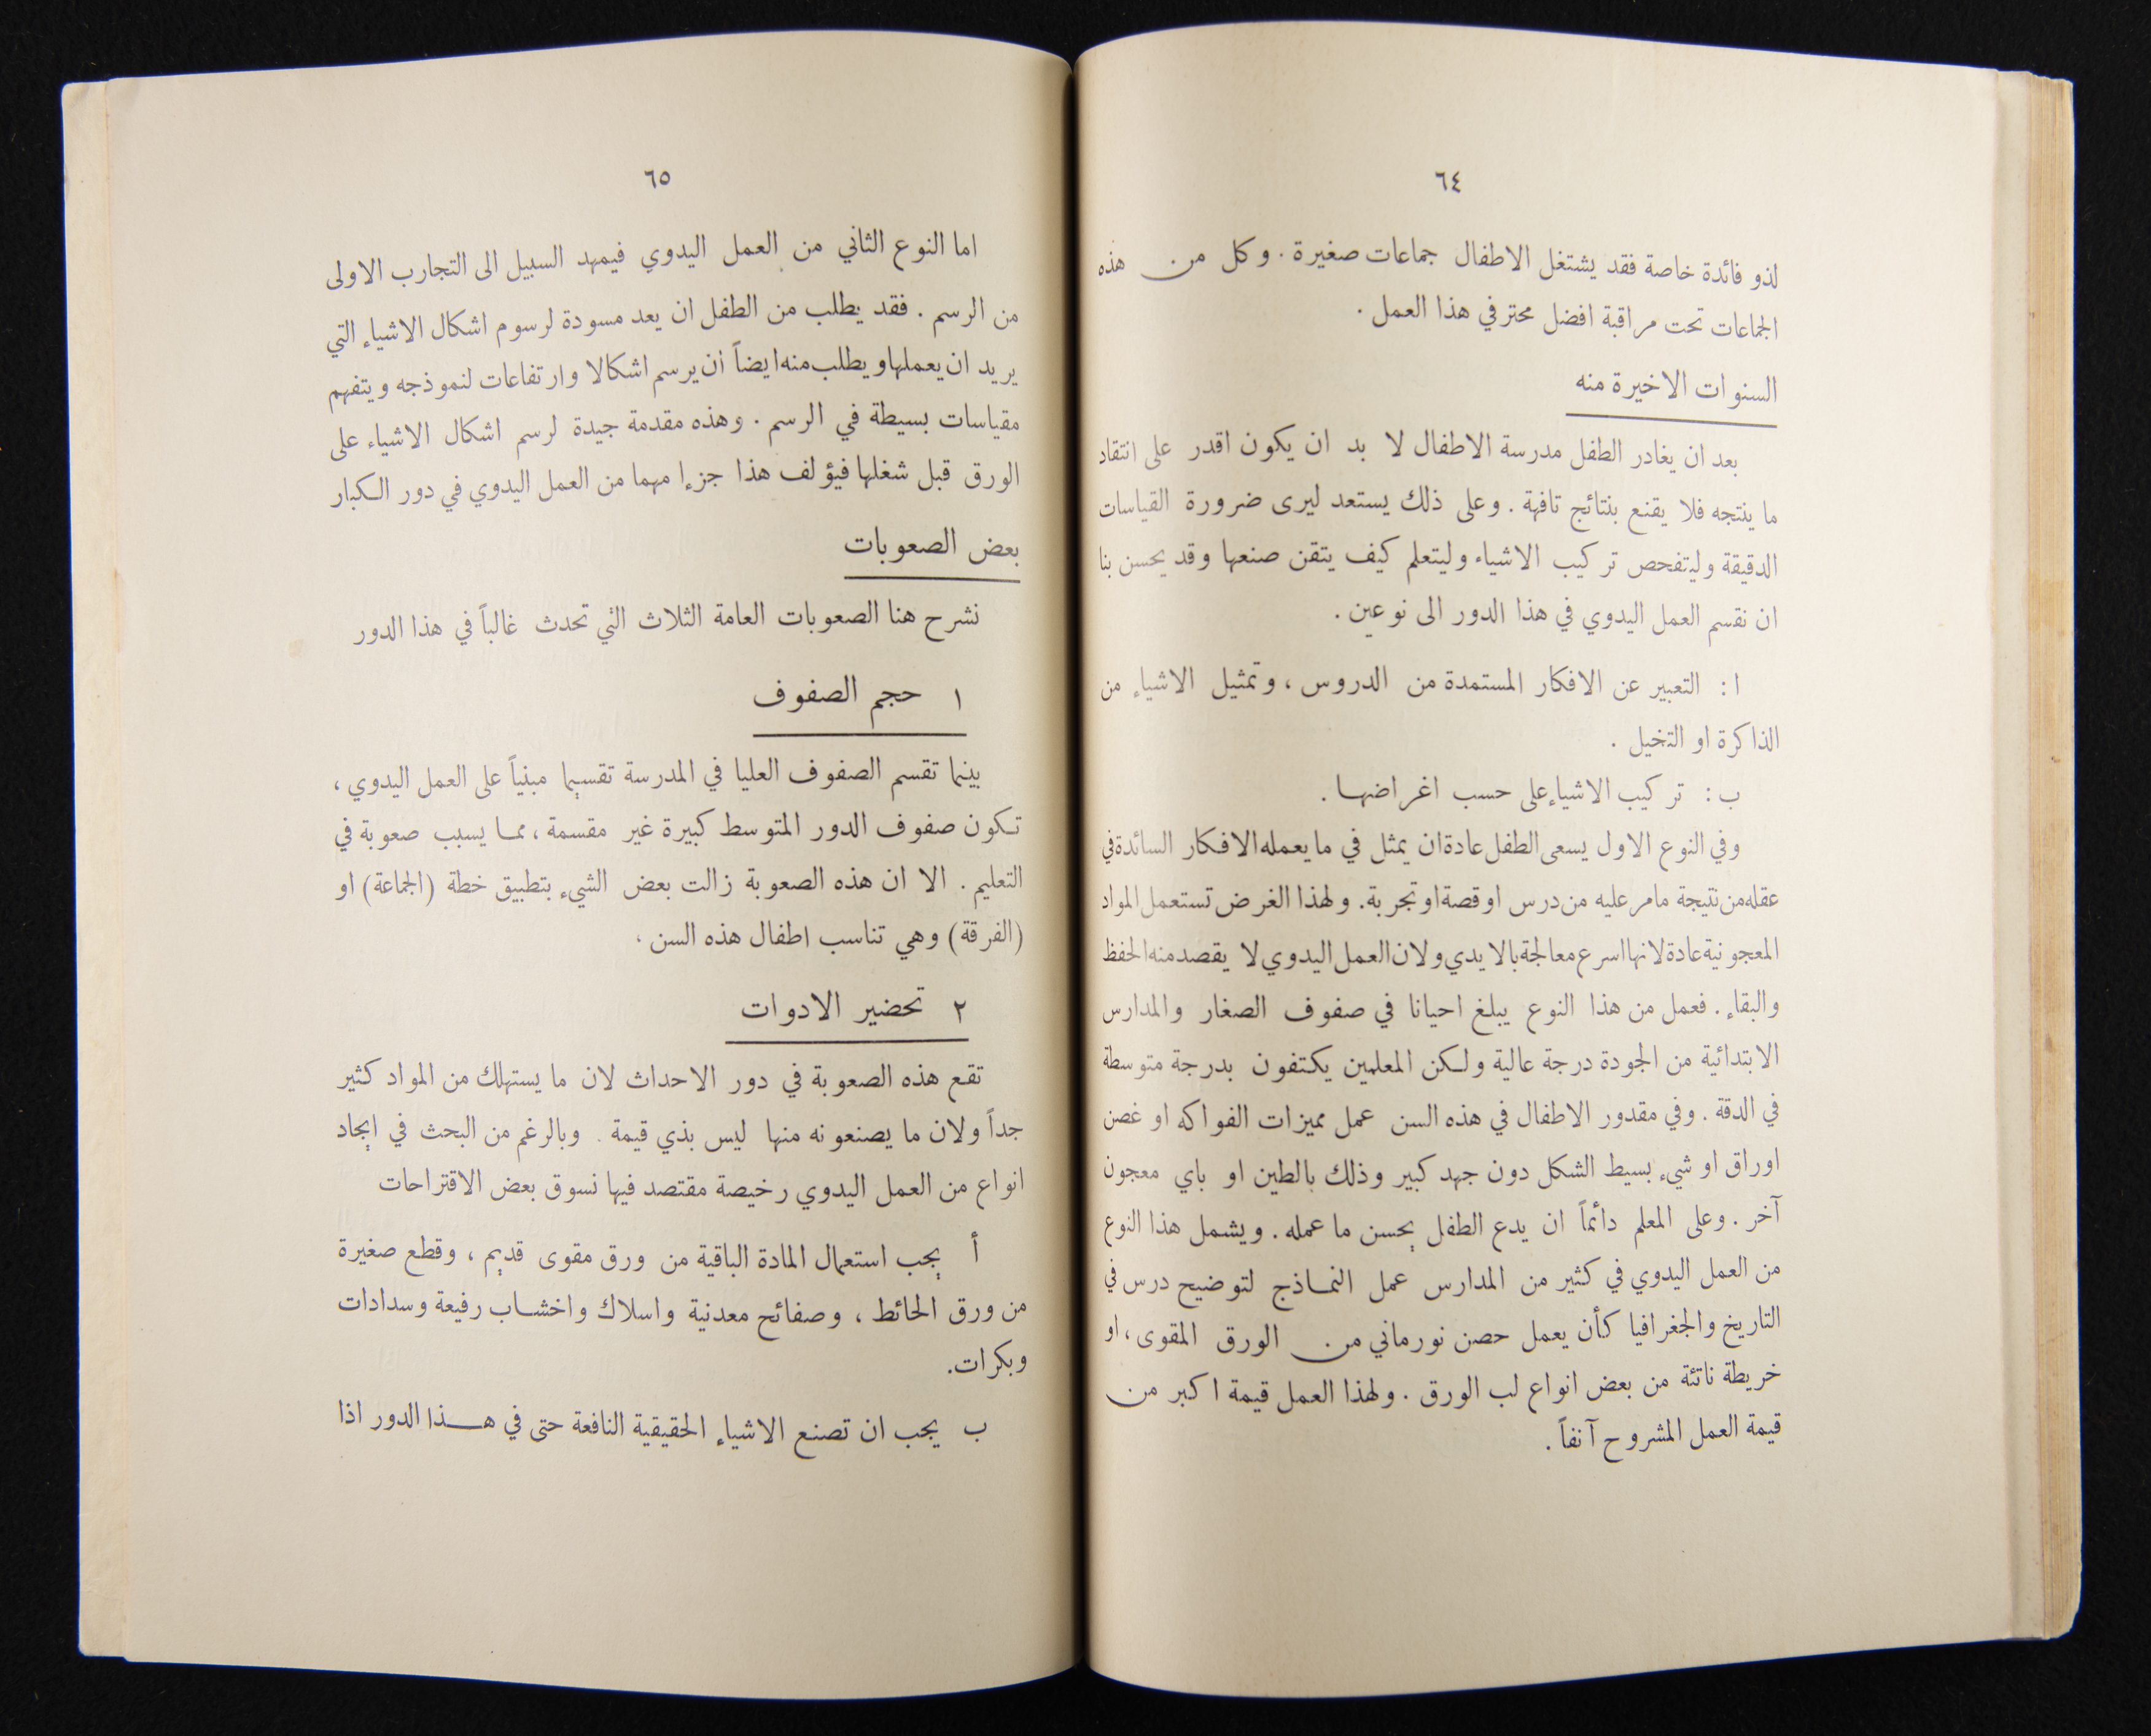 ٦٤
لذو فائدة خاصة فقد يشتغل الاطفال جماعات صغيرة . وكل من هذه
الجماعات تحت مراقبة افضل محترفي هذا العمل .
السنوات الاخيرة منه
بعد ان يغادر الطفل مدرسة الاطفال لا بد ان يكون اقدر على انتقاد
ما ينتجه فلا يقنع بنتائج تافهة . وعلى ذلك يستعد ليرى ضرورة القياسات
الدقيقة وليتفحص تركيب الاشياء وليتعلم كيف يتقن صنعها وقد يحسن بنا
ان نقسم العمل اليدوي في هذا الدور الى نوعين .
ا : التعبير عن الافكار المستمدة من الدروس ، وتمثيل الاشياء من
الذاكرة او التخيل .
ب : تركيب الاشياء على حسب اغراضها .
وفي النوع الاول يسعى الطفل عادة ان يمثل في ما يعمله الافكار السائدة في
عقله من نتيجة ما مر عليه من درس او قصة او تجربة . ولهذا الغرض تستعمل المواد
المعجونية عادة لانها اسرع معالجة بالايدي ولان العمل اليدوي لا يقصد منه الحفظ
والبقاء . فعمل من هذا النوع يبلغ احيانا في صفوف الصغار والمدارس
الابتدائية من الجودة درجة عالية ولكن المعلمين يكتفون بدرجة متوسطة
في الدقة . وفي مقدور الاطفال في هذه السن عمل مميزات الفواكه او غصن
اوراق او شيء بسيط الشكل دون جهد كبير وذلك بالطين او باي معجون
آخر . وعلى المعلم دائماً ان يدع الطفل يحسن ما عمله . ويشمل هذا النوع
من العمل اليدوي في كثير من المدارس عمل النماذج لتوضيح درس في
التاريخ والجغرافيا كأن يعمل حصن نورماني من الورق المقوى ، او
خريطة ناتئة من بعض انواع لب الورق . ولهذا العمل قيمة اكبر من
قيمة العمل المشروح آنفاً .
٦٥
اما النوع الثاني من العمل اليدوي فيمهد السبيل الى التجارب الاولى
من الرسم . فقد يطلب من الطفل ان يعد مسودة لرسوم اشكال الاشياء التي
يريد ان يعملها ويطلب منه ايضاً ان يرسم اشكالا وارتفاعات لنموذجه ويتفهم
مقياسات بسيطة في الرسم . وهذه مقدمة جيدة لرسم اشكال الاشياء على
الورق قبل شغلها فيؤلف هذا جزءا مهما من العمل اليدوي في دور الكبار
بعض الصعوبات
نشرح هنا الصعوبات العامة الثلاث التي تحدث غالباً في هذا الدور
١ حجم الصفوف
بينما تقسم الصفوف العليا في المدرسة تقسيما مبنياً على العمل اليدوي ،
تكون صفوف الدور المتوسط كبيرة غير مقسمة ، مما يسبب صعوبة في
التعليم . الا ان هذه الصعوبة زالت بعض الشيء بتطبيق خطة (الجماعة) او
(الفرقة) وهي تناسب اطفال هذه السن .
٢ تحضير الادوات
تقع هذه الصعوبة في دور الاحداث لان ما يستهلك من المواد كثير
جداً ولان ما يصنعونه منها ليس بذي قيمة . وبالرغم من البحث في ايجاد
انواع من العمل اليدوي رخيصة مقتصد فيها نسوق بعض الاقتراحات
أ يجب استعمال المادة الباقية من ورق مقوى قديم ، وقطع صغيرة
من ورق الحائط ، وصفائح معدنية واسلاك واخشاب رفيعة وسدادات
وبكرات .
ب يجب ان تصنع الاشياء الحقيقية النافعة حتى في هذا الدور اذا